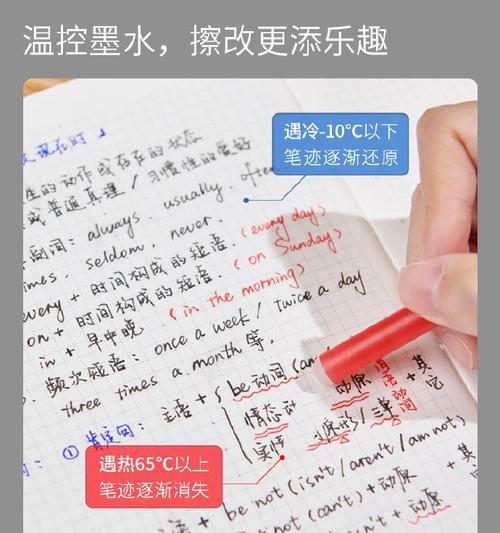 温控墨水，擦改更添乐趣
遇冷-10℃以下
笔迹逐渐还原
现在时
的动作或存在的状态
或普通真理 / 习惯性的爱好
副词: always. usually. often
times. seldom. never.
every + 时间构成的短语 (every day)
on + 时间构成的短语 (on Sunday)
in + 早中晚 (in the morning)
频次短语: once a week / twice a day
three times a month 等.
主语 + be动词 (am
情态动
实体
动原
原形 / 三单 + 其它
① 肯定句:
遇热65℃以上
笔迹逐渐消失
语 + be not (isn't / aren't / am not)
not (can't) + 动原 + 其
not + 动原